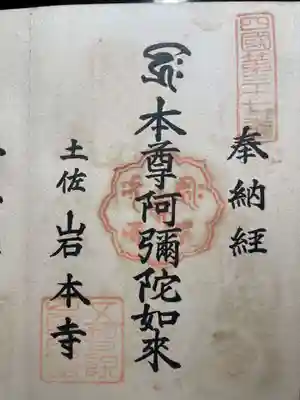 四國第三十七番
奉納経
本尊阿彌陀如來
土佐 岩本寺